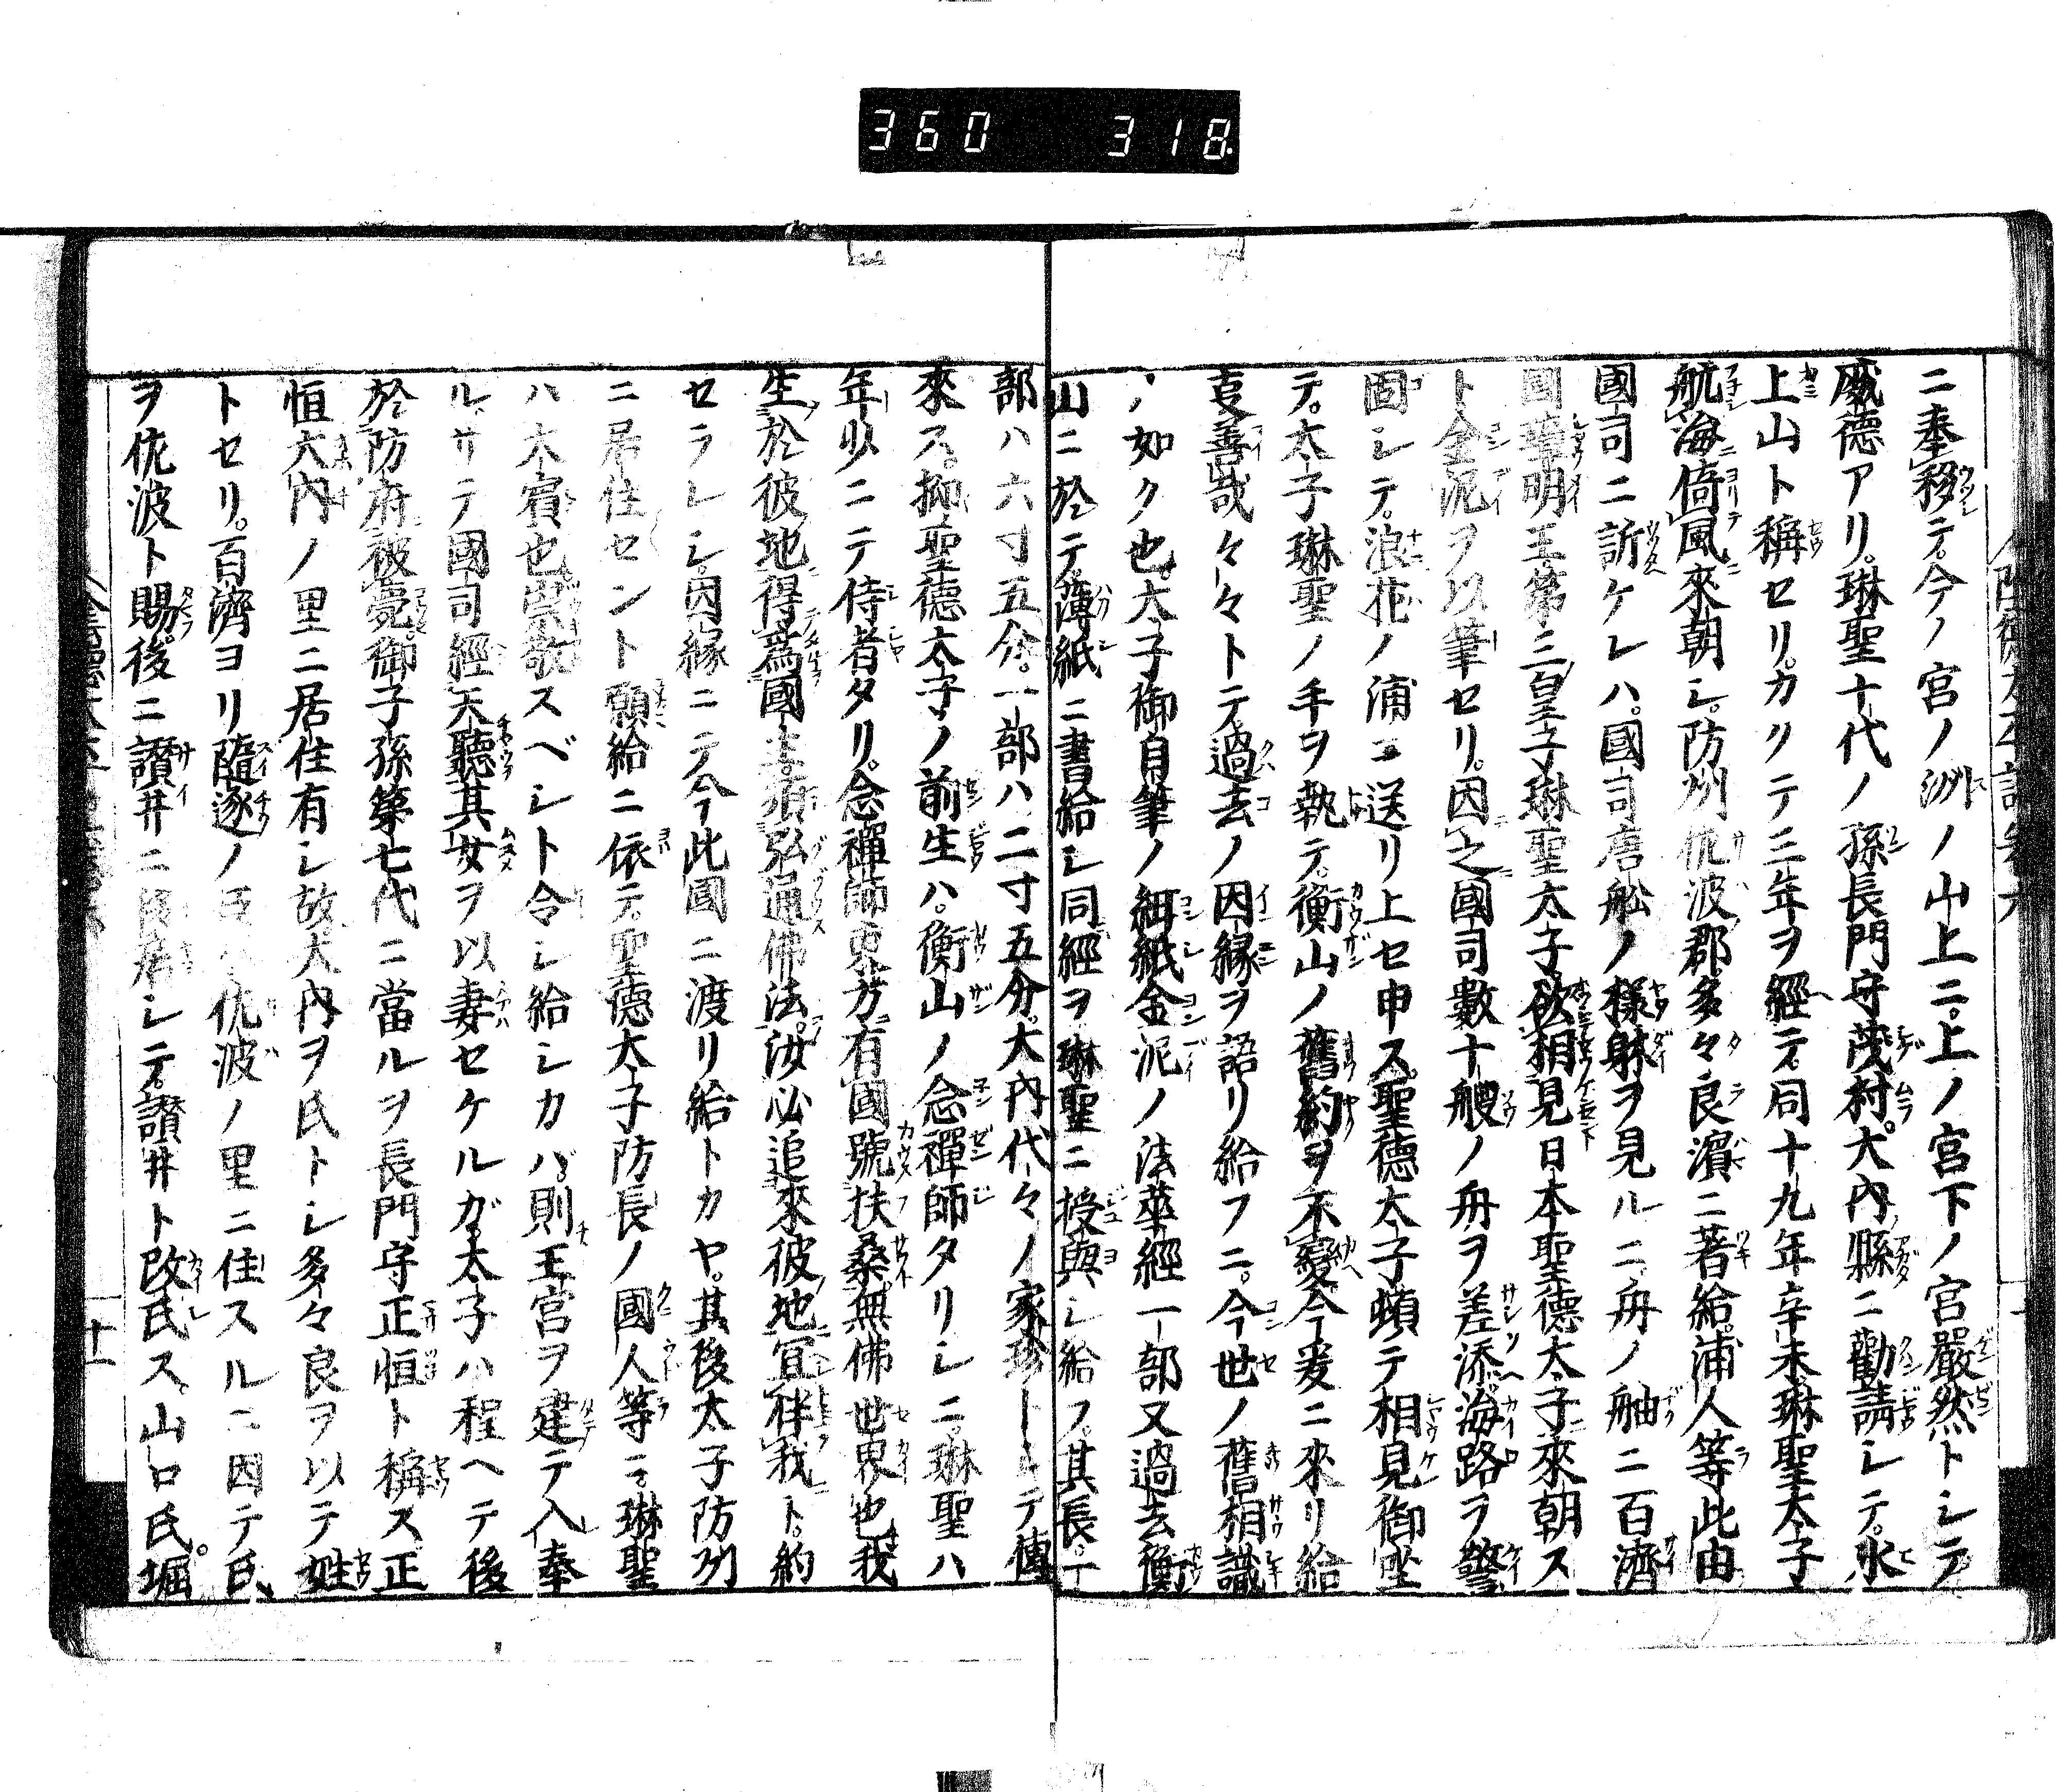 360 318
ニ奉移テ。今ノ宮ノ洲ノ山上ニ。上ノ宮下ノ宮嚴然トシテ
威德アリ。琳聖十代ノ孫長門守茂村。大内縣ニ勸請シテ。氷
上山ト稱セリ。カクテ三年ヲ經テ。同十九年辛未琳聖太子
航海倚風來朝シ。防州佐波郡多々良濱ニ著給。浦人等此由
國司ニ訴ケレハ。國司唐舩ノ樣躰ヲ見ルニ。舟ノ舳ニ百濟
國璋明王第三皇子琳聖太子欲相見日本聖德太子來朝ス
ト金泥ヲ以筆セリ。因之國司數十艘ノ舟ヲ差添。海路ヲ警
固シテ。浪花ノ浦ニ送リ上セ申ス。聖德太子頓テ相見御坐
テ。太子琳聖ノ手ヲ執テ。衡山ノ舊約ヲ不變今爰ニ來リ給
善哉々々トテ。過去ノ因縁ヲ語リ給フニ。今世ノ舊相識
ノ如ク也。太子御自筆ノ紺紙金泥ノ法華經一部又過去衡
山ニ於テ。薄紙ニ書給シ同經ヲ琳聖ニ授與シ給フ。其長一
部ハ六寸五分。一部ハ二寸五分。大内代々ノ家珍トシテ傳
來ス。抑聖德太子ノ前生ハ。衡山ノ念禪師タリシニ。琳聖ハ
年少ニテ侍者タリ。念禪師東方有國號扶桑。無佛世界也我
生於彼地得爲國主。須弘通佛法。汝必追來彼地宜伴我ト。約
セラレシ。因縁ニテ今此國ニ渡リ給トカヤ。其後太子防州
ニ居住セント願給ニ依テ。聖德太子防長ノ國人等ニ。琳聖
ハ大賓也。崇敬スベシト令シ給シカバ。則王宮ヲ建テ入奉
ル。サテ國司經天聽其女ヲ以妻セケルガ。太子ハ程ヘテ後
於防府被薨御。子孫第七代ニ當ルヲ長門守正恒ト稱ス正
恒大内ノ里ニ居住有シ故大内ヲ氏トシ多々良ヲ以テ姓
トセリ。百濟ヨリ隨逐ノ臣ハ佐波ノ里ニ住スルニ因テ氏
ヲ佐波ト賜。後ニ讃井ニ居シテ。讃井ト改氏ス。山口氏。堀
十一